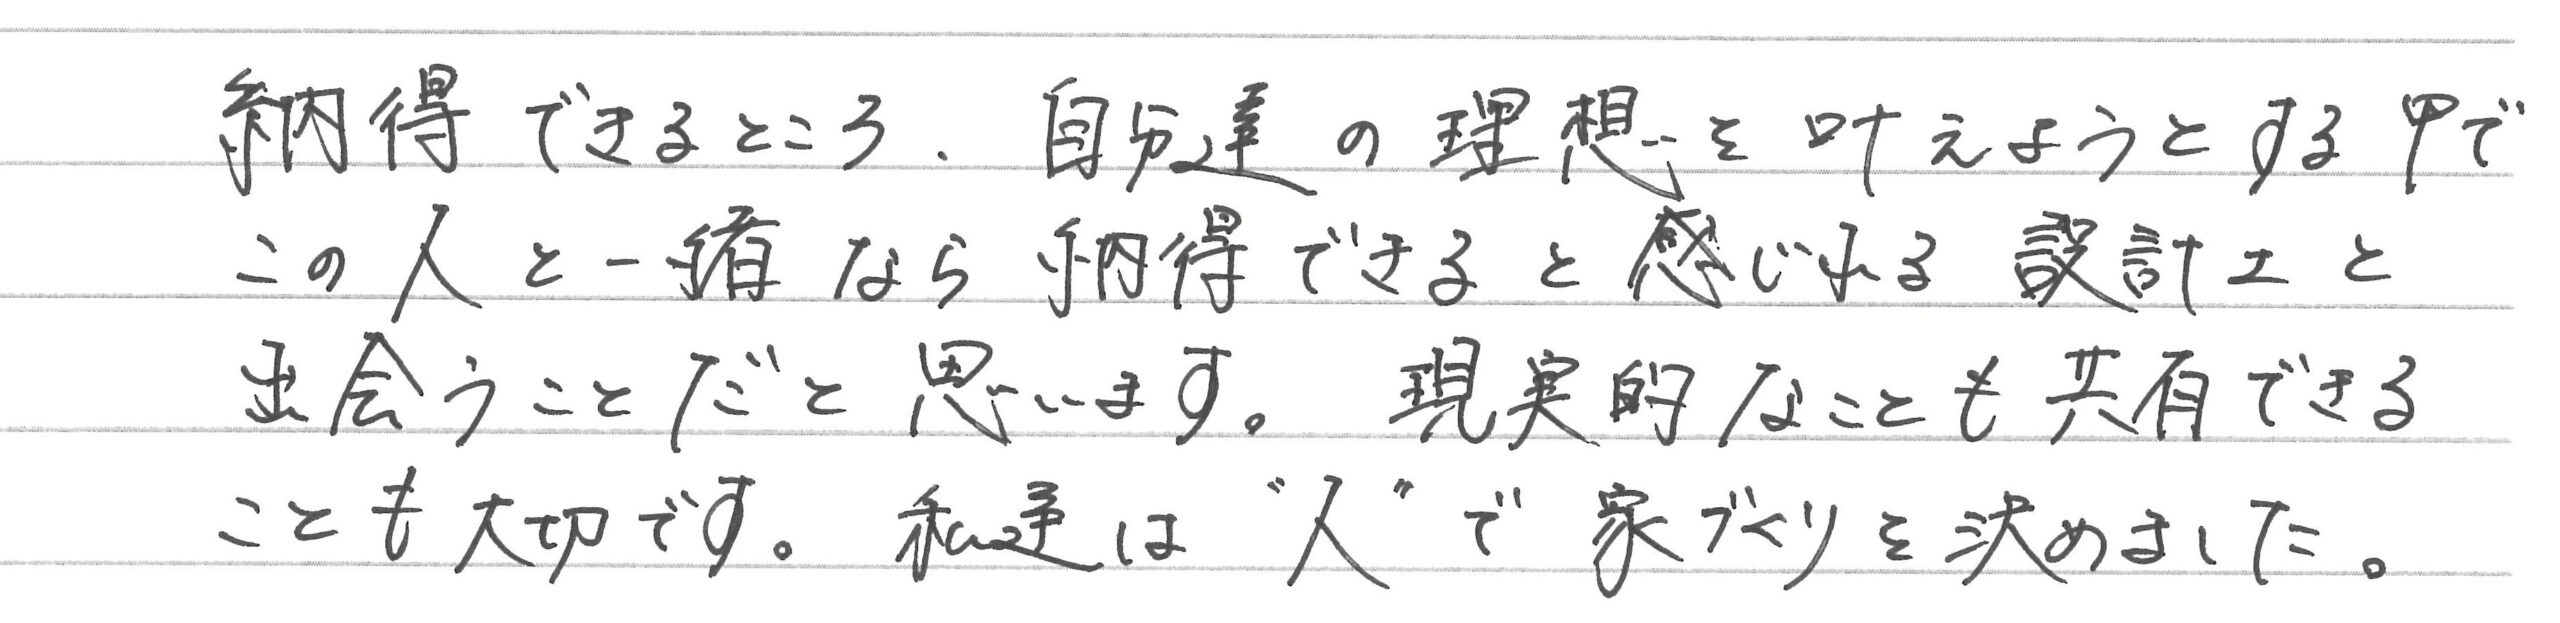 納得できるところ、自分達の理想を叶えようとする中で
この人と一緒なら納得できると感じれる設計士と
出会うことだと思います。現実的なことも共有できる
ことも大切です。私達は"人"で家づくりを決めました。